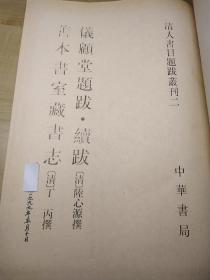 清人書目題跋叢刊二
儀顧堂題跋·續跋 [清]陸心源撰
善本書室藏書志 [清]丁丙撰
中華書局